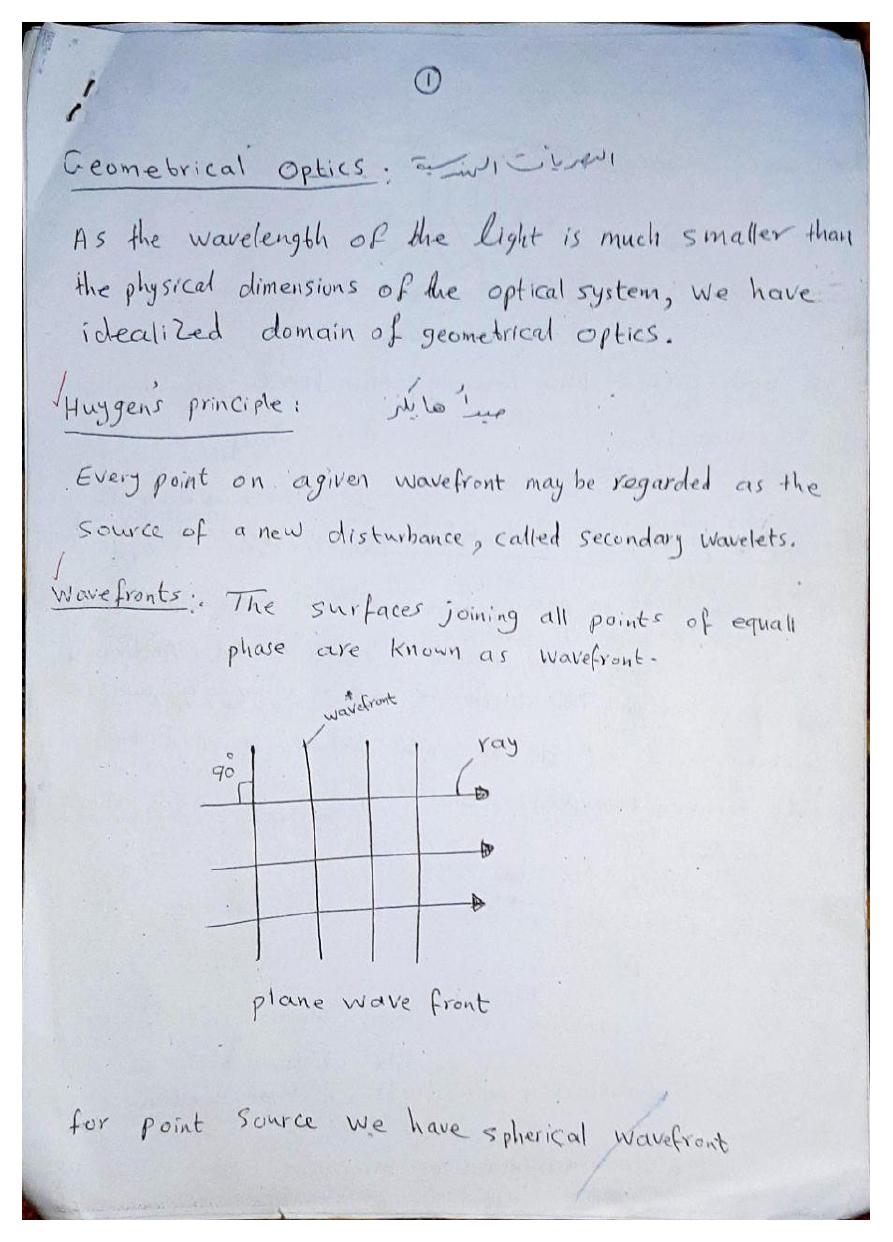 ①
Geometrical Optics: البصريات الهندسية
As the wavelength of the light is much smaller than
the physical dimensions of the optical system, we have
idealized domain of geometrical optics.
Huygen's principle: مبدأ هايگنز
Every point on a given wavefront may be regarded as the
source of a new disturbance, called secondary wavelets.
Wavefronts: The surfaces joining all points of equall
phase are known as wavefront.
wavefront
ray
90°
plane wave front
for point source we have spherical wavefront